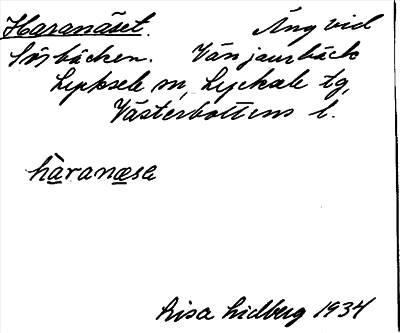 Haranäset. Äng vid
Sörbäcken. Vänjaurbäck
Lycksele sn, Lycksele tg,
Västerbottens l.
hàranæsa
Lisa Lidberg 1934